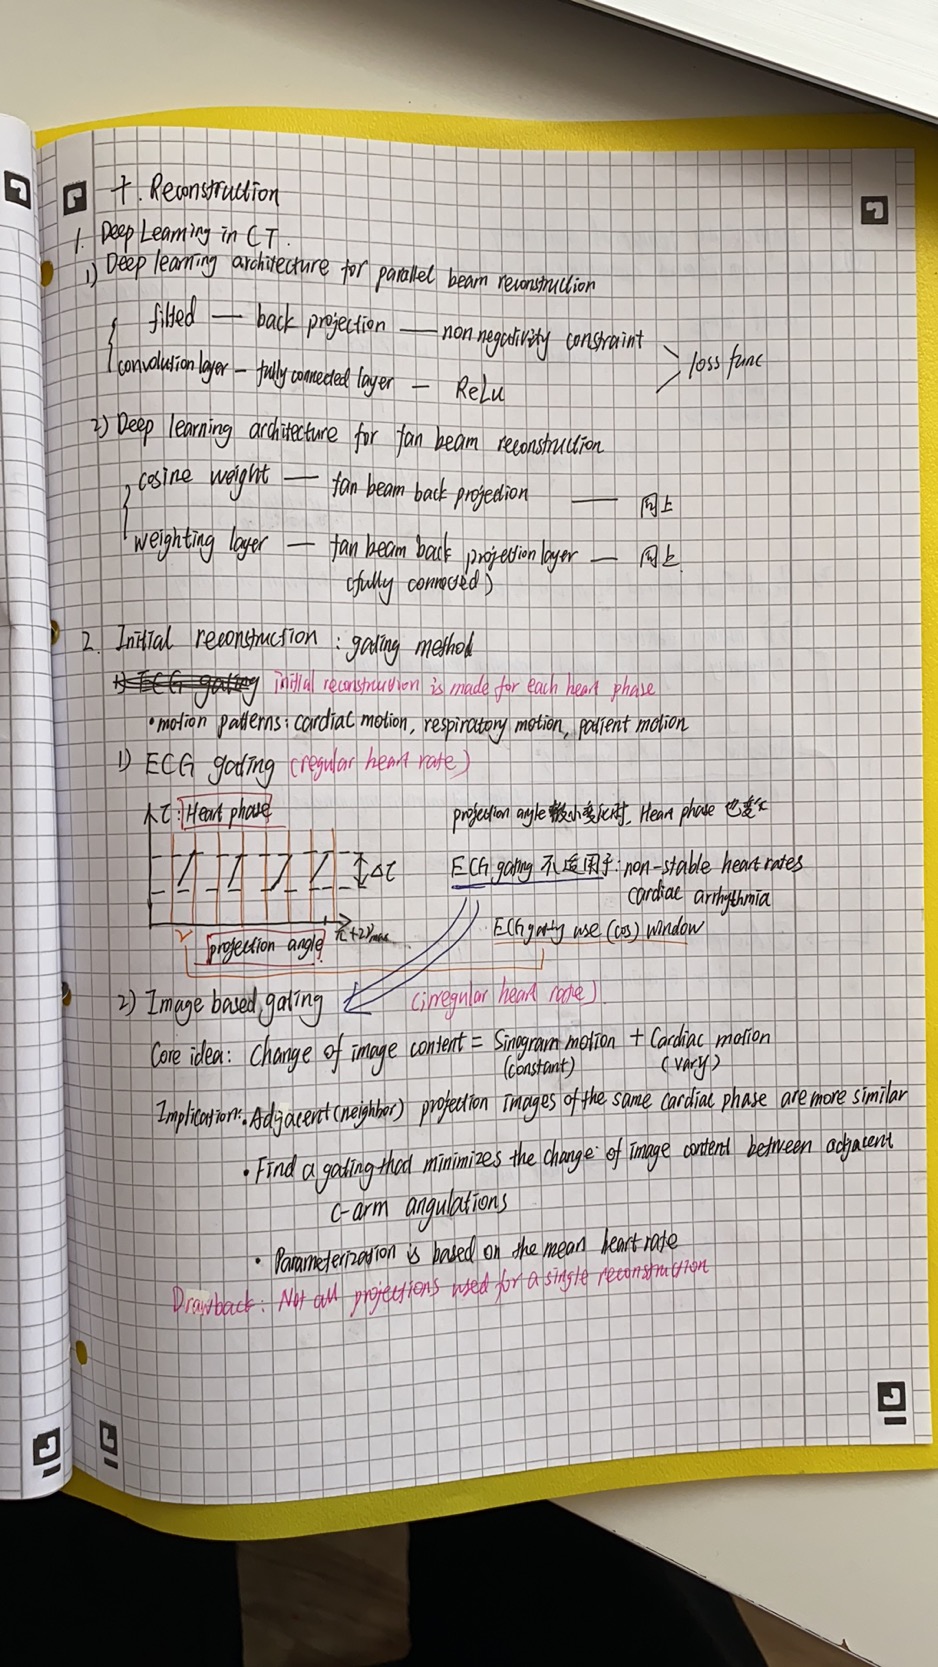 十. Reconstruction
1. Deep Learning in CT.
1) Deep learning architecture for parallel beam reconstruction
filted — back projection — non negativity constraint
loss func
convolution layer — fully connected layer — ReLu
2) Deep learning architecture for fan beam reconstruction
cosine weight — fan beam back projection — 同上
weighting layer — fan beam back projection layer — 同上.
(fully connected)
2. Initial reconstruction : gating method
1) ECG gating initial reconstruction is made for each heart phase
• motion patterns: cardiac motion, respiratory motion, patient motion
1) ECG gating (regular heart rate)
τ: Heart phase
projection angle 变化时, Heart phase 也变
Δτ
ECG gating 不适用于: non-stable heart rates
cardiac arrhythmia
π+2γmax
ECG gating use (cos) window
projection angle
2) Image based gating (irregular heart rate)
Core idea: Change of image content = Sinogram motion + Cardiac motion
(constant) (vary)
Implication: • Adjacent (neighbor) projection images of the same cardiac phase are more similar
• Find a gating that minimizes the change of image content between adjacent
c-arm angulations
• Parameterization is based on the mean heart rate
Drawback: Not all projections used for a single reconstruction